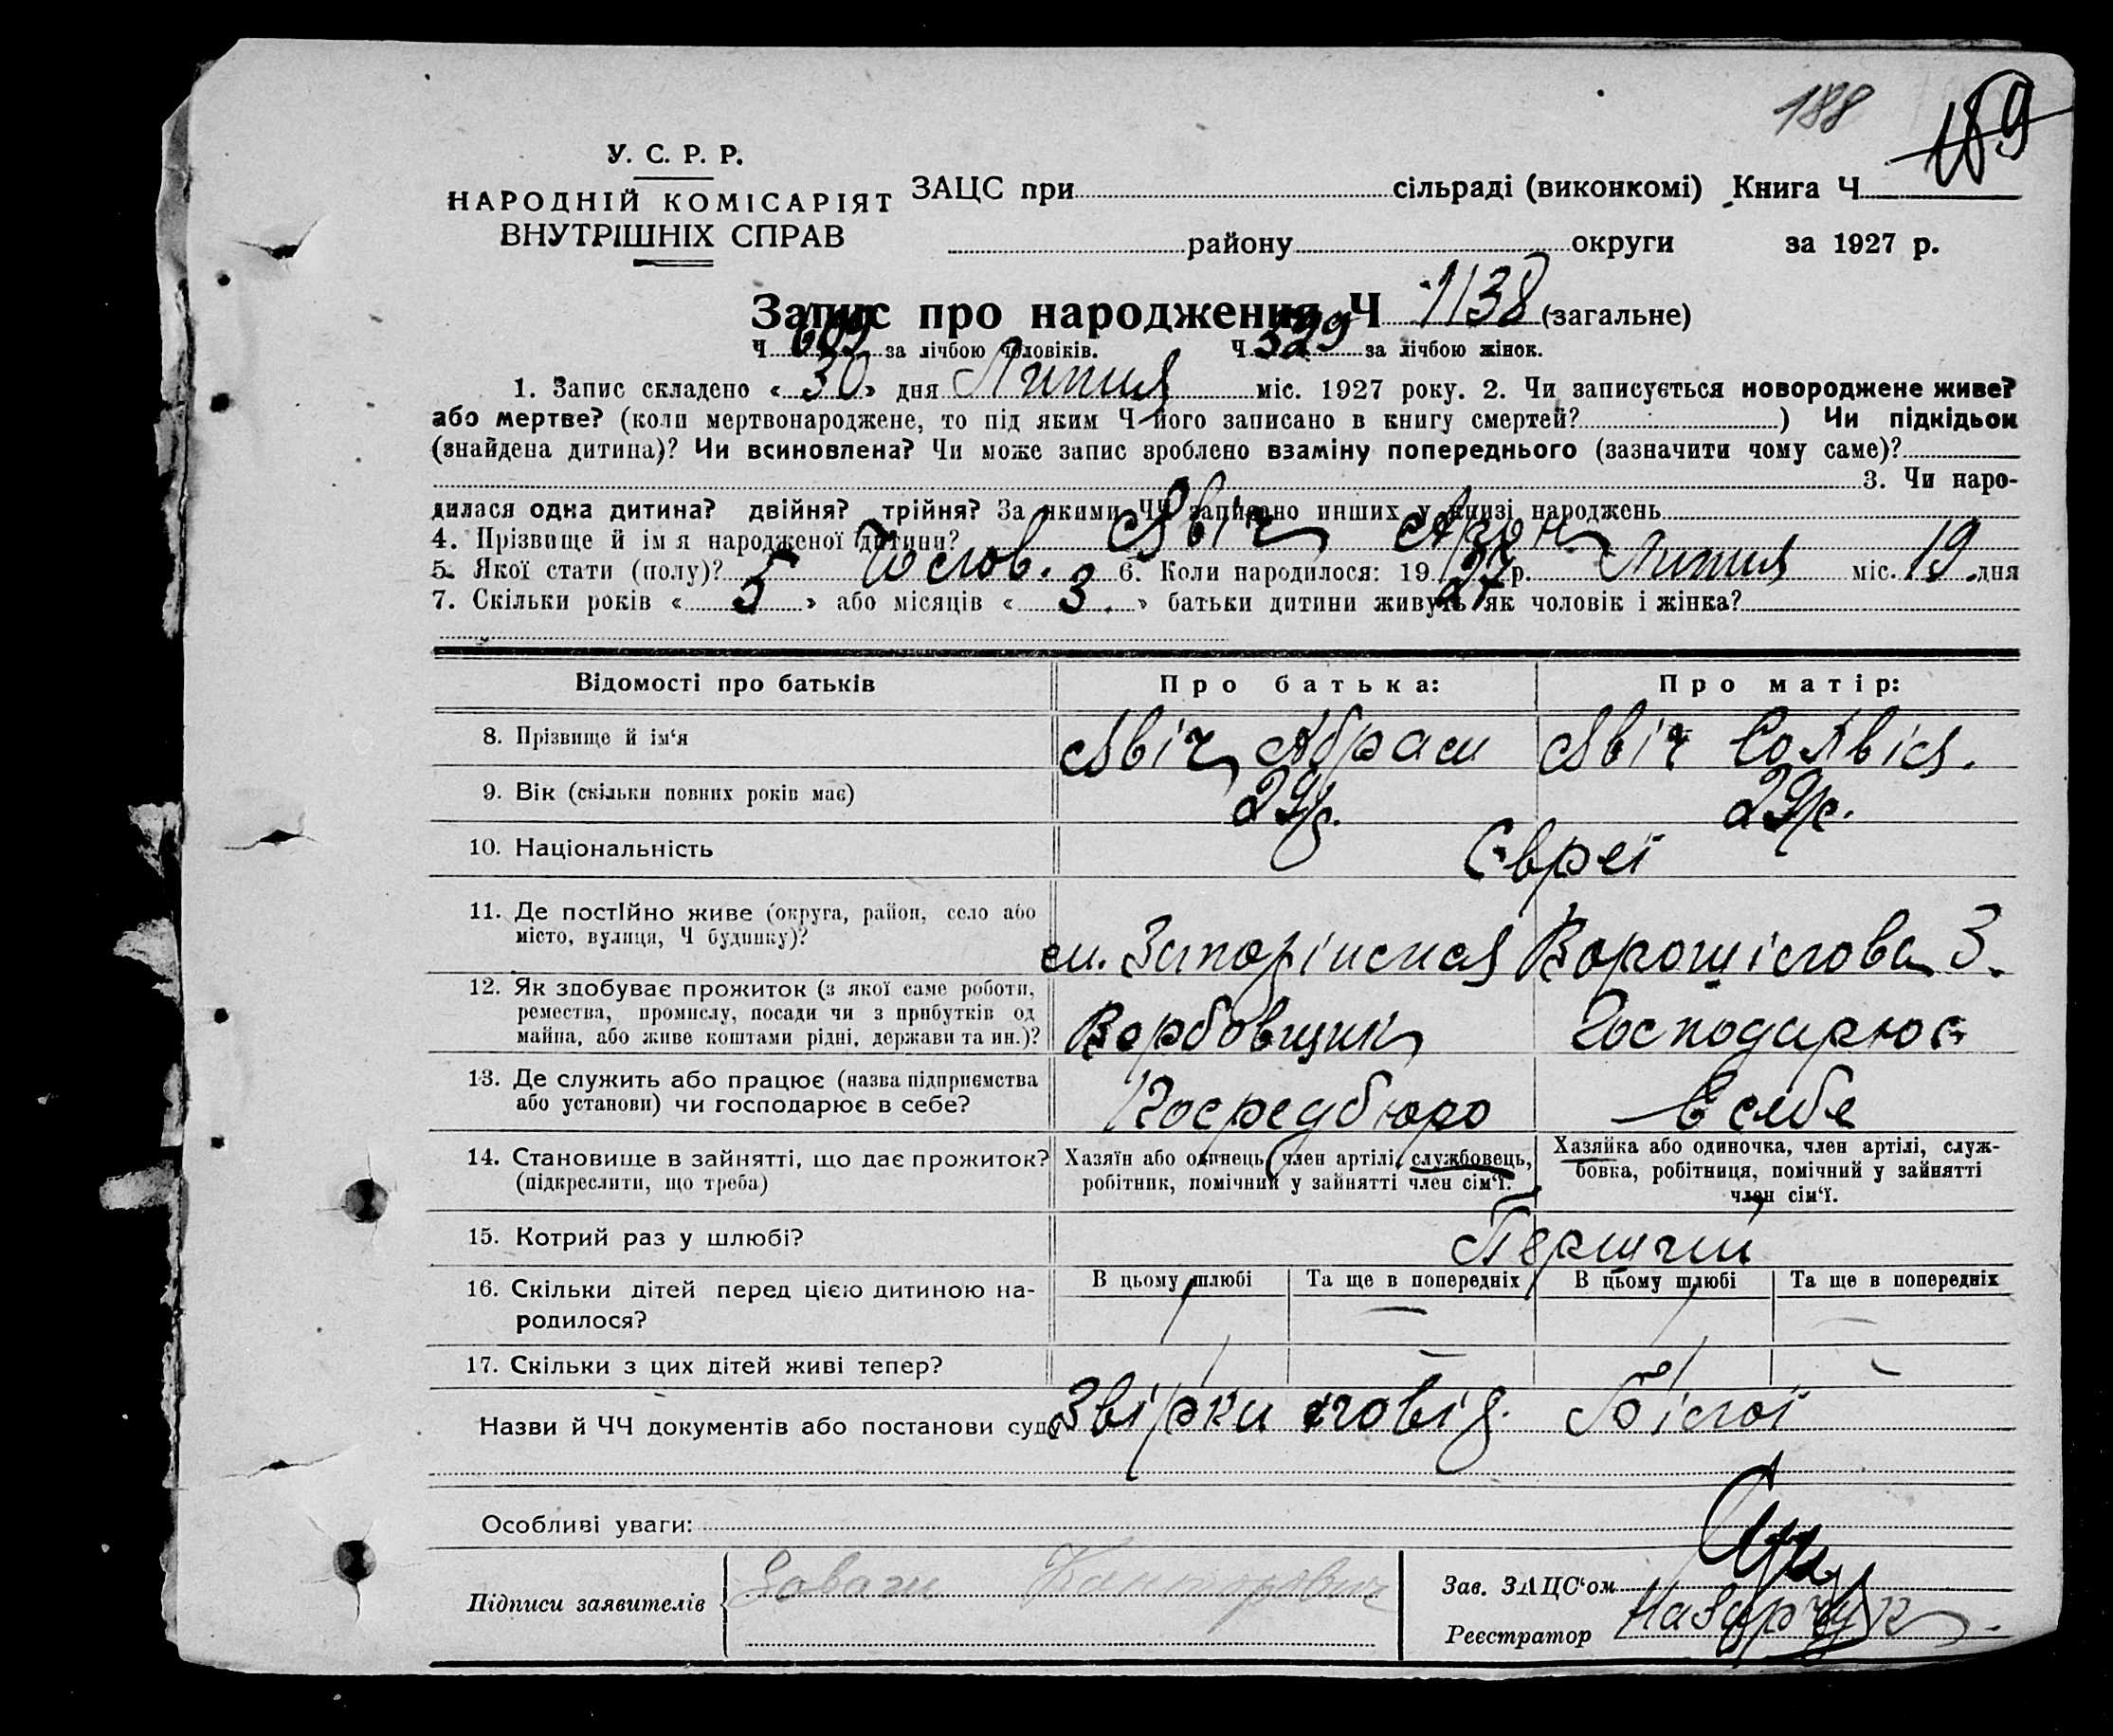 188 189
У. С. Р. Р.
НАРОДНІЙ КОМІСАРІЯТ
ВНУТРІШНІХ СПРАВ
ЗАЦС при сільраді (виконкомі) Книга Ч
району округи за 1927 р.
Запис про народження Ч 1138 (загальне)
Ч 609 за лічбою чоловіків. Ч 529 за лічбою жінок.
1. Запис складено « 30 » дня Липня міс. 1927 року. 2. Чи записується новороджене живе?
або мертве? (коли мертвонароджене, то під яким Ч його записано в книгу смертей? ) Чи підкідьок
(знайдена дитина)? Чи всиновлена? Чи може запис зроблено взаміну попереднього (зазначити чому саме)?
3. Чи наро-
дилася одна дитина? двійня? трійня? За якими ЧЧ записано инших у книзі народжень
4. Прізвище й ім я народженої дитини? Явіч Арон
5. Якої стати (полу)? Чолов. 6. Коли народилося: 1927 р. Липня міс. 19 дня
7. Скільки років « 5 » або місяців « 3 » батьки дитини живуть як чоловік і жінка?
Відомості про батьків Про батька: Про матір:
8. Прізвище й ім'я Явіч Абрам Явіч
9. Вік (скільки повних років має) 29 р. 29 р.
10. Національність Євреї
11. Де постійно живе (округа, район, село або
місто, вулиця, Ч будинку)? Ворошілова 3.
12. Як здобуває прожиток (з якої саме роботи,
ремества, промислу, посади чи з прибутків од
майна, або живе коштами рідні, держави та ин.)? Ворбовщик Господарює
13. Де служить або працює (назва підприємства
або установи) чи господарює в себе? Посредбюро в себе
14. Становище в зайнятті, що дає прожиток?
(підкреслити, що треба)
Хазяїн або одинець, член артілі, службовець,
робітник, помічний у зайнятті член сім'ї.
Хазяйка або одиночка, член артілі, служ-
бовка, робітниця, помічний у зайнятті
член сім'ї.
15. Котрий раз у шлюбі? Перший
16. Скільки дітей перед цією дитиною на-
родилося?
В цьому шлюбі Та ще в попередніх В цьому шлюбі Та ще в попередніх
1 — 1 —
17. Скільки з цих дітей живі тепер? 1 — 1 —
Назви й ЧЧ документів або постанови суду
Особливі уваги:
Підписи заявителів
Зав. ЗАЦС'ом
Реєстратор Назарчук